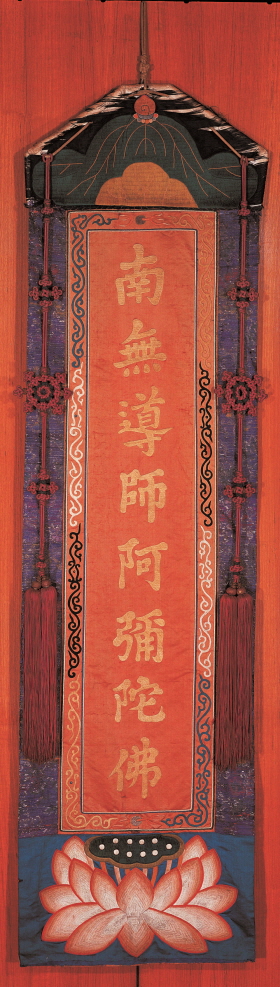 南無導師阿彌陀佛